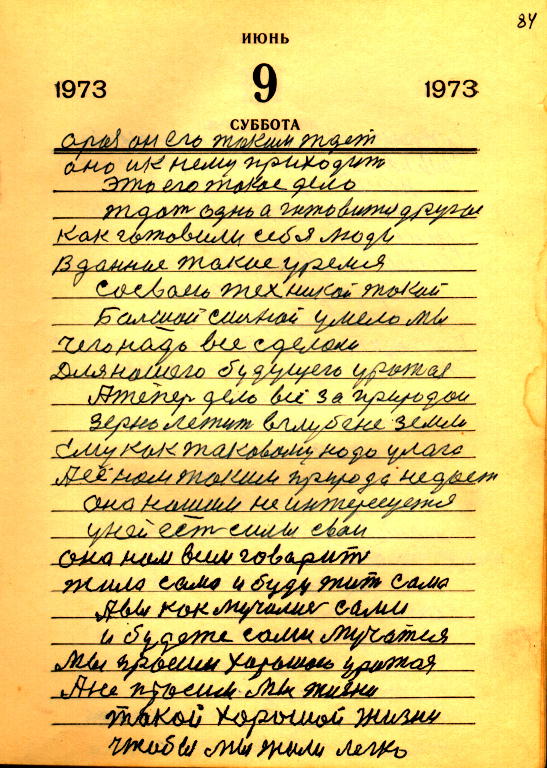 84
ИЮНЬ
1973 9 1973
СУББОТА
он его таким ждет
оно и к нему приходит
Это его такое дело
ждат одно а готовится другое
как готовили себя люди
В данное такие уремя
со своею техникой такой
Балшой силной умело мы
чего надо все сделоли
Для нашего будущего урожая
А тепер дело всё за природои
Зерно летит в глубене земли
Ему как таковому нада улага
А её нам таким природа не дает
она нашим не интересуется
у ней ест силы свои
она нам всим говарит
жила сама и буду жит сама
А вы как мучалис сами
и будете сами мучатся
Мы просим харошого урожая
А не просим мы жизни
такой харошой жизни
чтобы мы жили легко